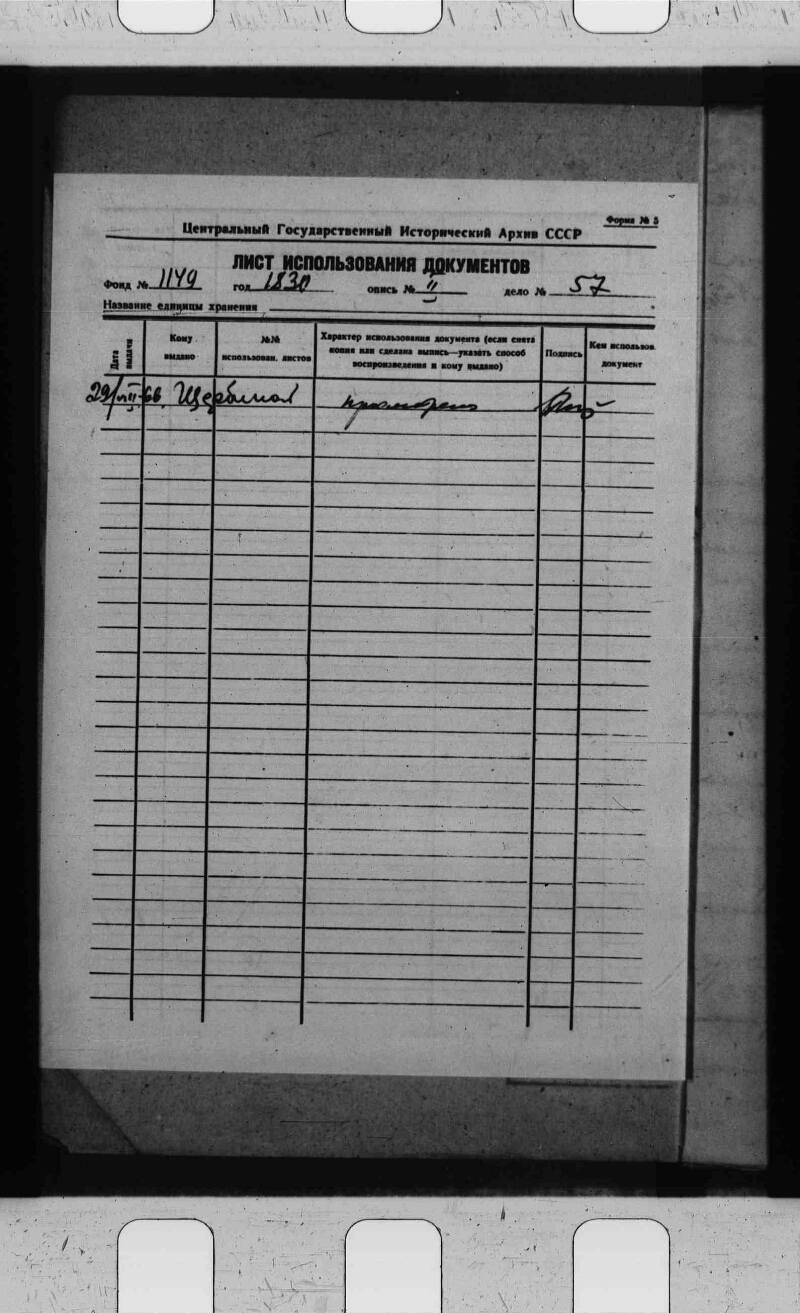 Форма № 5
Центральный Государственный Исторический Архив СССР
ЛИСТ ИСПОЛЬЗОВАНИЯ ДОКУМЕНТОВ
Фонд № 1149 год 1830 опись № II дело № 57
Название единицы хранения
Дата выдачи
Кому выдано
№№ использован. листов
Характер использования документа (если снята копия или сделана выпись—указать способ воспроизведения и кому выдано)
Подпись
Кем использов. документ
29/VII-66